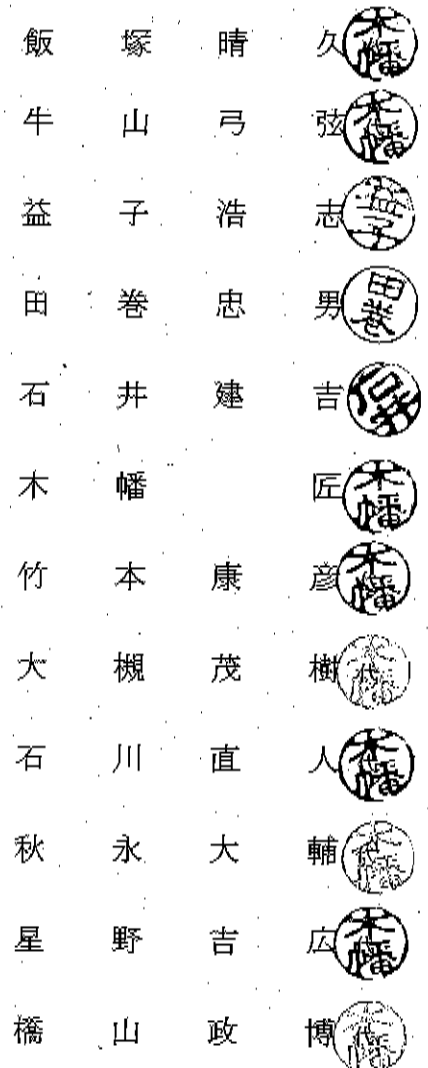 飯塚晴久 木幡
牛山弓弦 木代幡
益子浩志 益子
田巻忠男 田巻
石井建吉 石井
木幡匠 木幡
竹本康彦 木幡
大槻茂樹 木代幡
石川直人 木代幡
秋永大輔 木代幡
星野吉広 木幡
橋山政博 木代幡